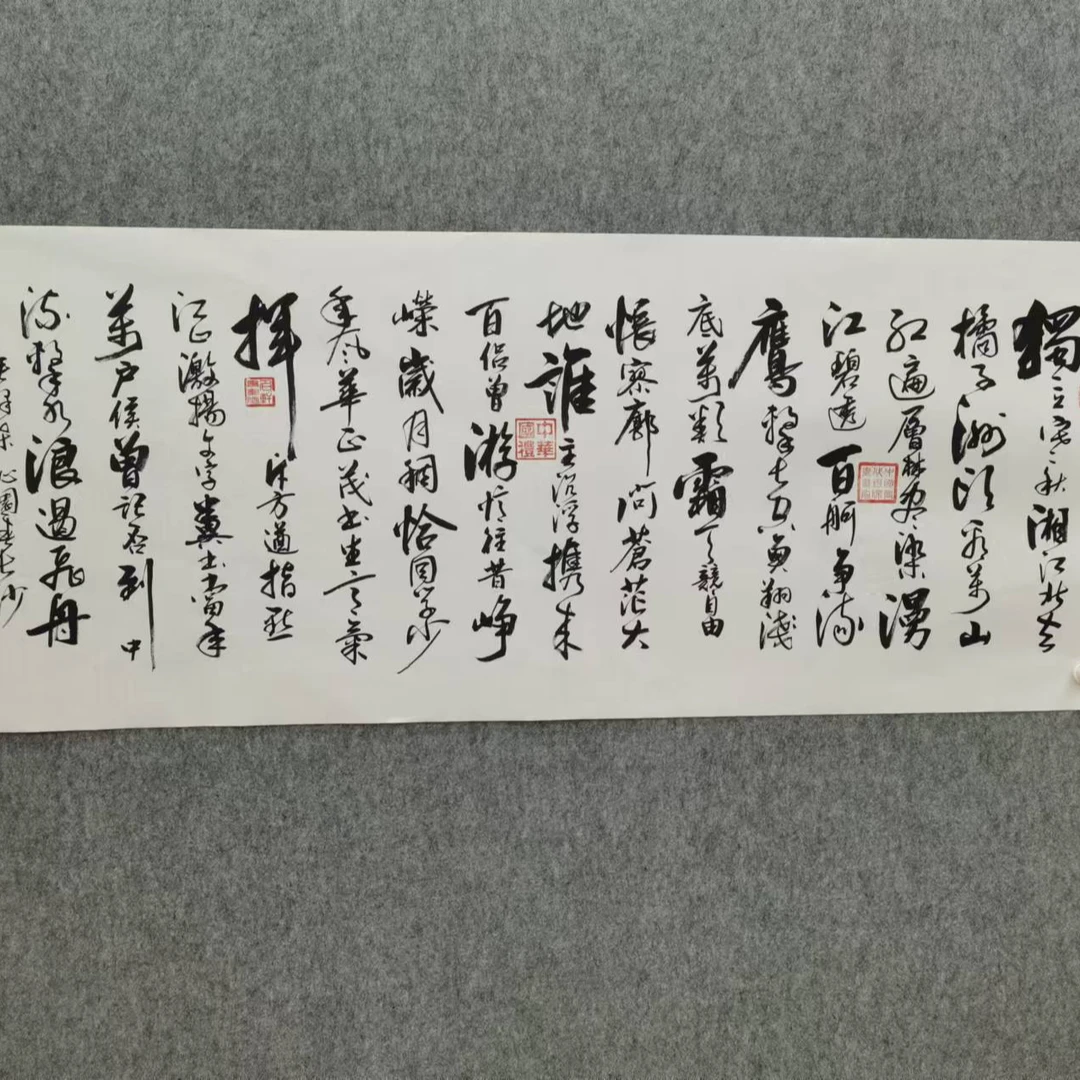 獨立寒秋湘江北去
橘子洲頭看萬山
紅遍層林盡染漫
江碧透百舸爭流
鷹擊長空魚翔淺
底萬類霜天競自由
悵寥廓問蒼茫大
地誰主沉浮攜來
百侶曾游憶往昔崢
嶸歲月稠恰同學少
年風華正茂書生意氣
揮斥方遒指點
江山激揚文字糞土當年
萬戶侯曾記否到中
流擊水浪遏飛舟
沁園春長沙
中華國禮